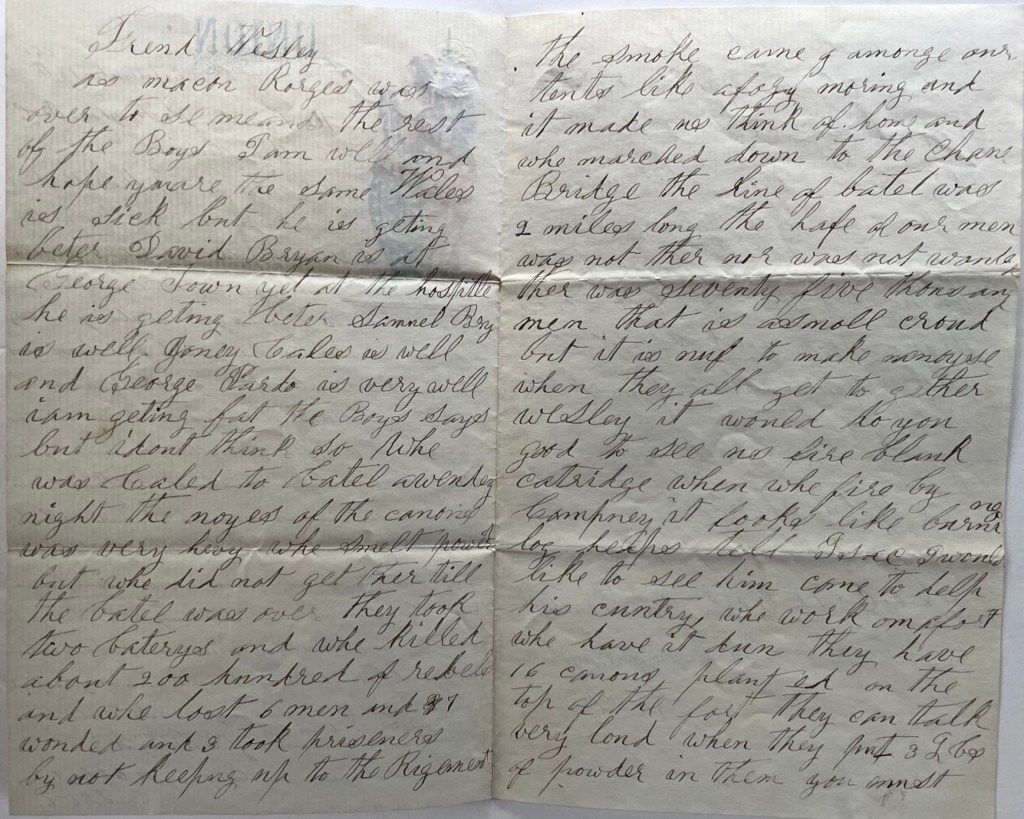 Frend Wesley
as macon Rorges was
over to se me and the rest
of the Boys I am well and
hope youare the same Wales
is sick but he is geting
beter David Bryan is at
George Town yet at the hospitle
he is geting beter Samuel Bry
is well Joney Cales is well
and George Pardo is very well
iam geting fat the Boys says
but idont think so Whe
was Caled to batel awendez
night the noyes of the canons
was very hevy whe smelt powder
but whe did not get ther till
the batel was over they took
two baterys and whe killed
about 200 hundred of rebels
and whe lost 6 men and 37
wonded and 3 took priseners
by not keepng up to the Rigement
the smoke came g amonge our
tents like afogy moring and
it made us think of home and
whe marched down to the Chane
Bridge the line of batel was
2 miles long the hafe of our men
was not ther nor was not wanted
ther was seventy five thousan
men that is asmoll croud
but it is nuf to make anoyse
when they all get to gether
Wesley it would do you
good to see us fire blank
catridge when whe fire by
Campney it looks like burning
log heaps tell Isac I would
like to see him come to help
his cuntry whe work on afort
whe have it dun they have
16 canons planted on the
top of the fort they can talk
very loud when they put 3 Lbs
of powder in them you must